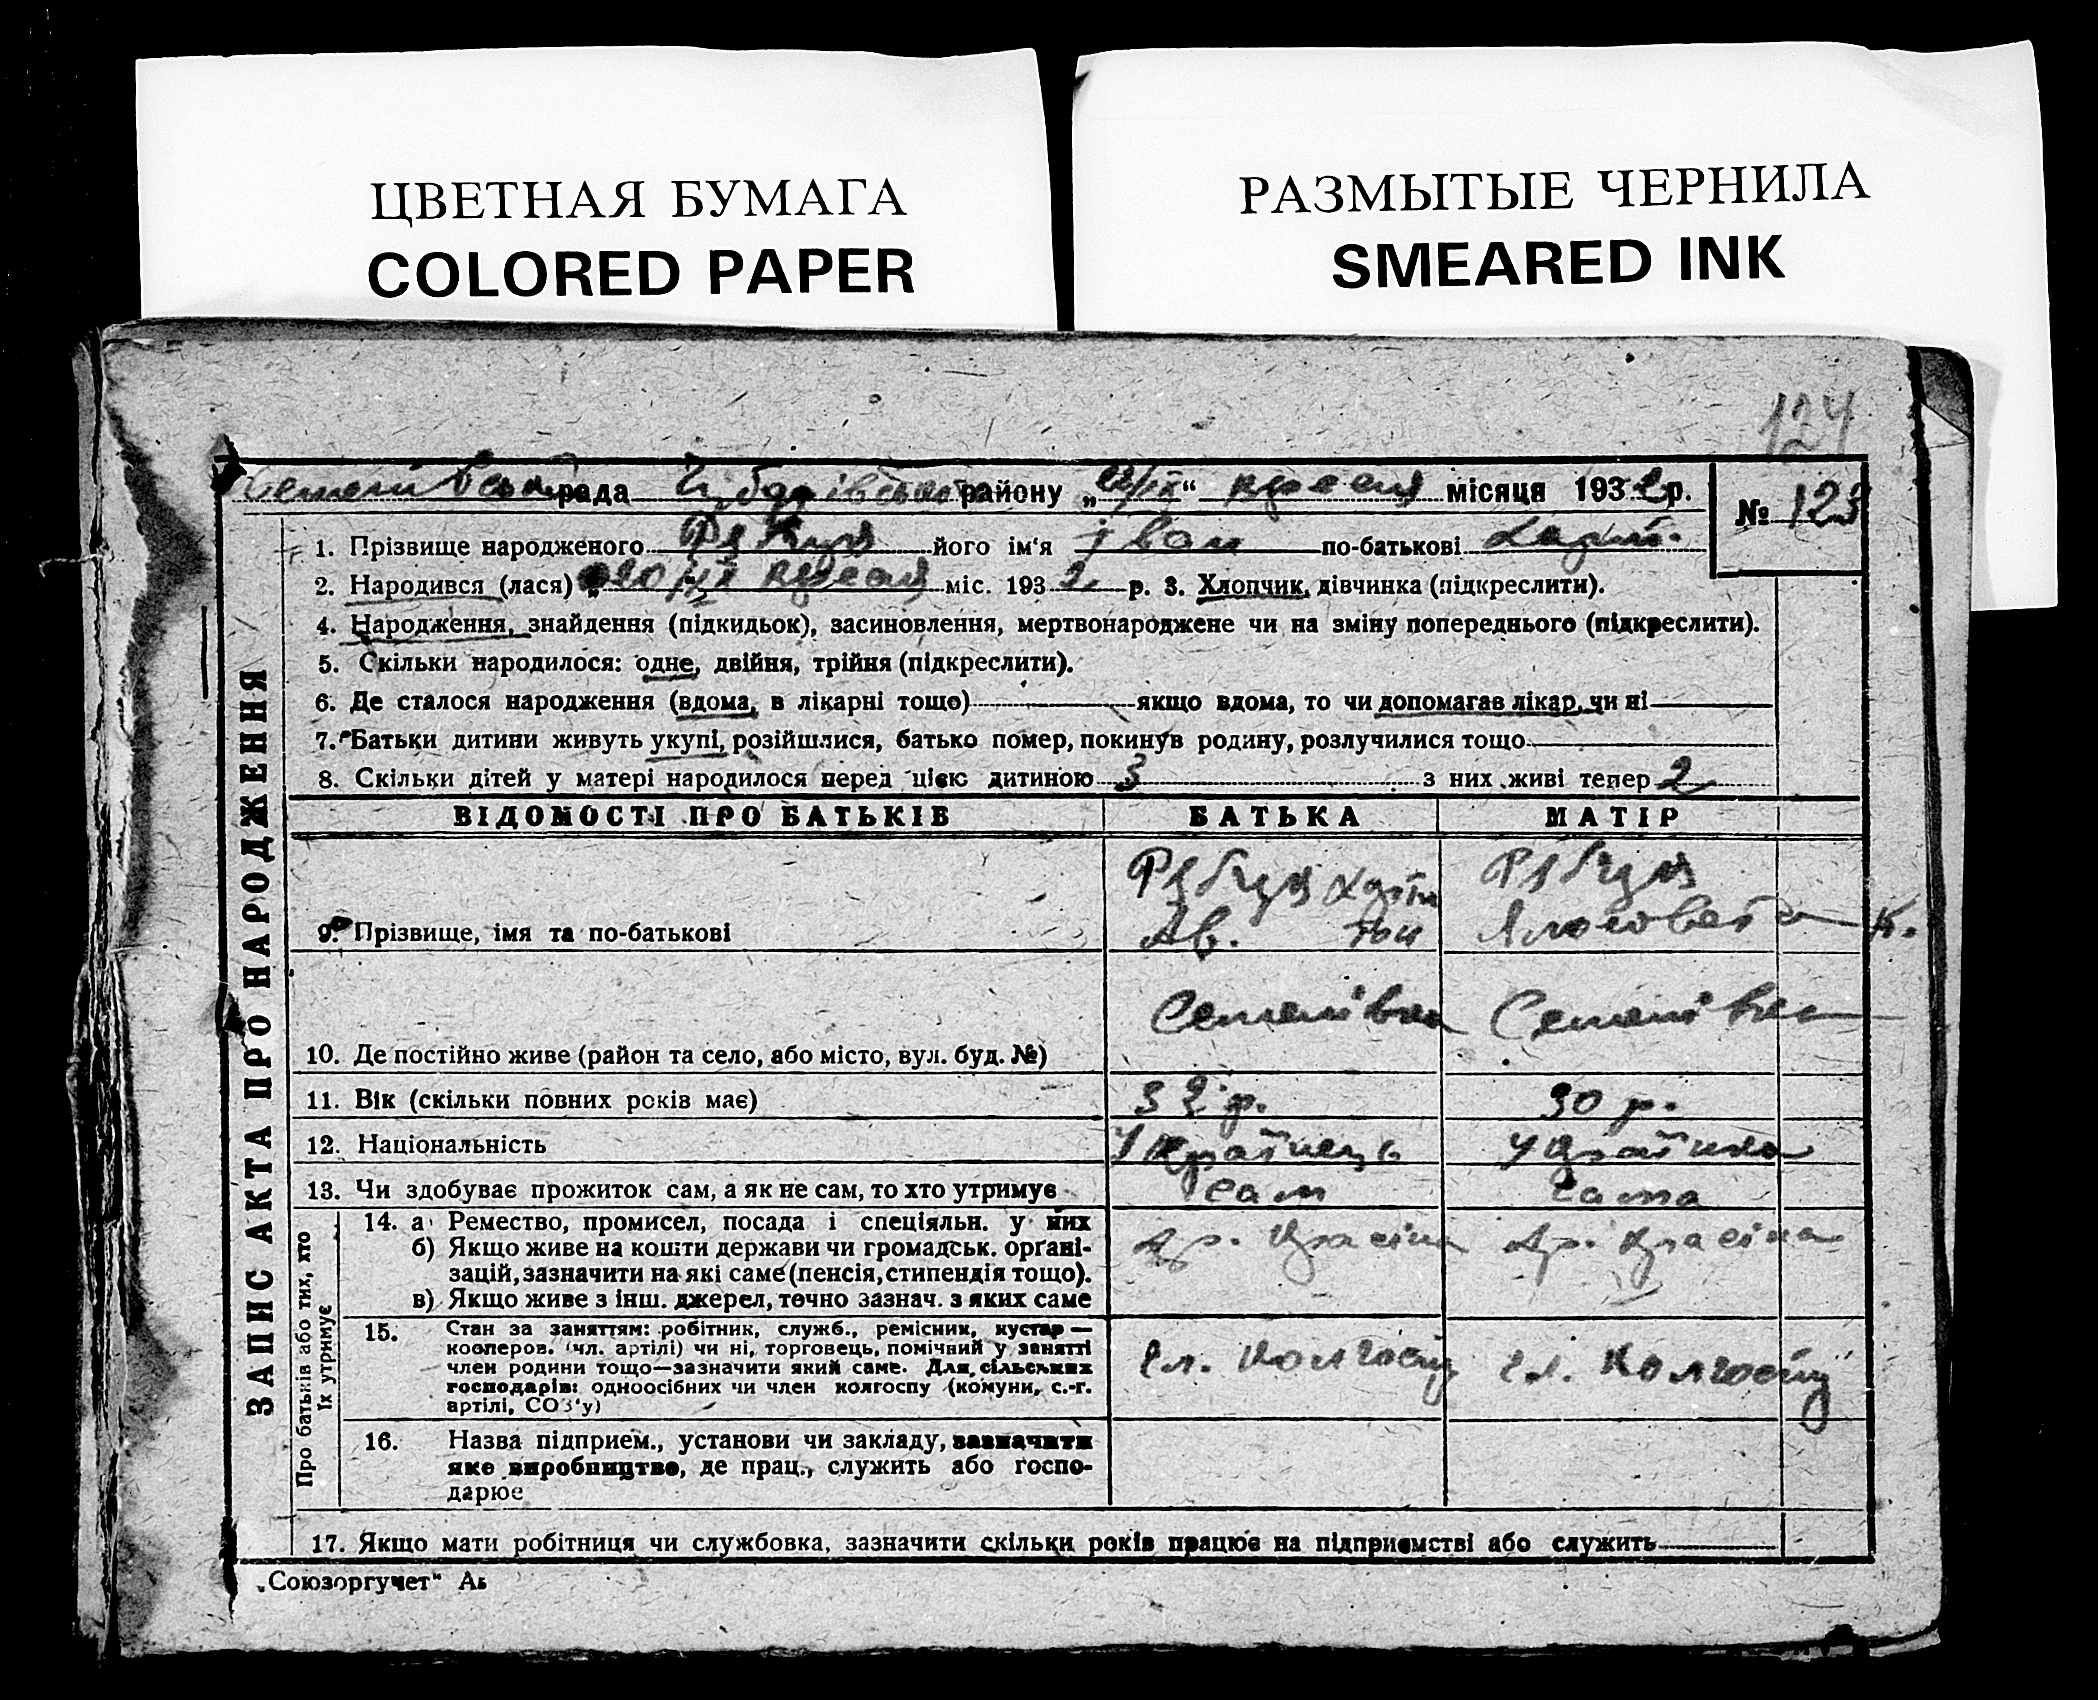 ЦВЕТНАЯ БУМАГА
COLORED PAPER
РАЗМЫТЫЕ ЧЕРНИЛА
SMEARED INK
124
рада району „22/IX“ вресня місяця 1932 р.
№ 123
1. Прізвище народженого його ім'я Іван по-батькові
2. Народився (лася) „20/IX вресня міс. 1932 р. 3. Хлопчик, дівчинка (підкреслити).
4. Народження, знайдення (підкидьок), засиновлення, мертвонароджене чи на зміну попереднього (підкреслити).
5. Скільки народилося: одне, двійня, трійня (підкреслити).
6. Де сталося народження (вдома, в лікарні тощо) якщо вдома, то чи допомагав лікар, чи ні
7. Батьки дитини живуть укупі, розійшлися, батько помер, покинув родину, розлучилися тощо
8. Скільки дітей у матері народилося перед цією дитиною 3 з них живі тепер 2
ЗАПИС АКТА ПРО НАРОДЖЕННЯ
ВІДОМОСТІ ПРО БАТЬКІВ БАТЬКА МАТІР
9. Прізвище, імя та по-батькові
10. Де постійно живе (район та село, або місто, вул. буд. №) Семенівка Семенівка
11. Вік (скільки повних років має) 32 р. 30 р.
12. Національність Українець Українка
13. Чи здобуває прожиток сам, а як не сам, то хто утримує сам сама
Про батьків або тих, хто
їх утримує
14. а) Ремество, промисел, посада і спеціяльн. у них
б) Якщо живе на кошти держави чи громадськ. органі-
зацій, зазначити на які саме (пенсія, стипендія тощо).
в) Якщо живе з інш. джерел, точно зазнач. з яких саме
15. Стан за заняттям: робітник, служб., ремісник, кустар —
кооперов. (чл. артілі) чи ні, торговець, помічний у занятті
член родини тощо—зазначити який саме. Для сільських
господарів: одноосібних чи член колгоспу (комуни, с.-г.
артілі, СОЗ'у)
чл. колгоспу чл. колгоспу
16. Назва підприєм., установи чи закладу, зазначити
яке виробництво, де прац., служить або госпо-
дарює
17. Якщо мати робітниця чи службовка, зазначити скільки років працює на підприємстві або служить
„Союзоргучет“